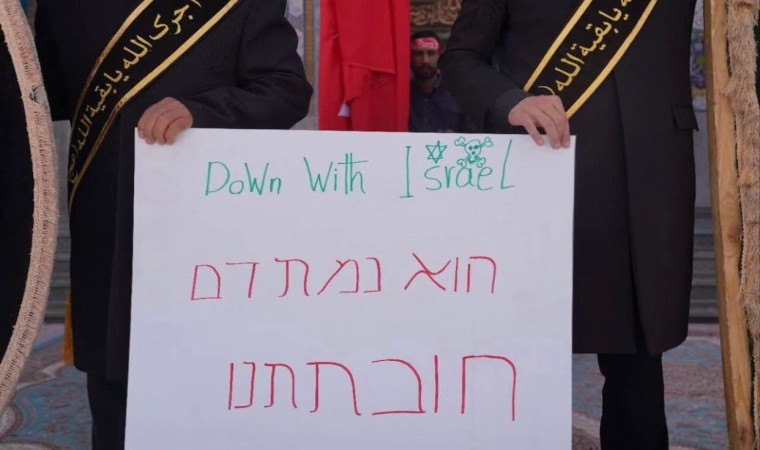 اجرک الله یا بقیة الله
یا بقیة الله
DoWn With Israel
הוא נמת דם
חובתתנו